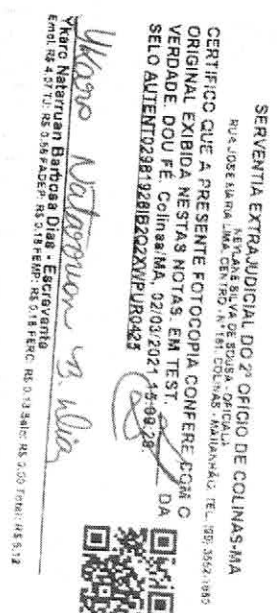 SERVENTIA EXTRAJUDICIAL DO 2º OFÍCIO DE COLINAS-MA
KEYLANE SILVA DE SOUSA - OFICIALA
RUA JOSÉ MARIA LIMA CENTRO, N°181 COLINAS - MARANHÃO, TEL.
CERTIFICO QUE A PRESENTE FOTOCOPIA CONFERE COM O
ORIGINAL EXIBIDA NESTAS NOTAS. EM TEST. DA
VERDADE. DOU FÉ. Colinas/MA, 02/03/2021 15:09:29.
SELO
Ykaro Natarruan B. Dias
Ykaro Natarruan Barbosa Dias - Escrevente
Emol: R$ 4,57 TJ: R$ 0,56 FADEP: R$ 0,18 FEMP: R$ 0,18 FERC: R$ 0,13 Selo: R$ 0,00 Total: R$ 5,12